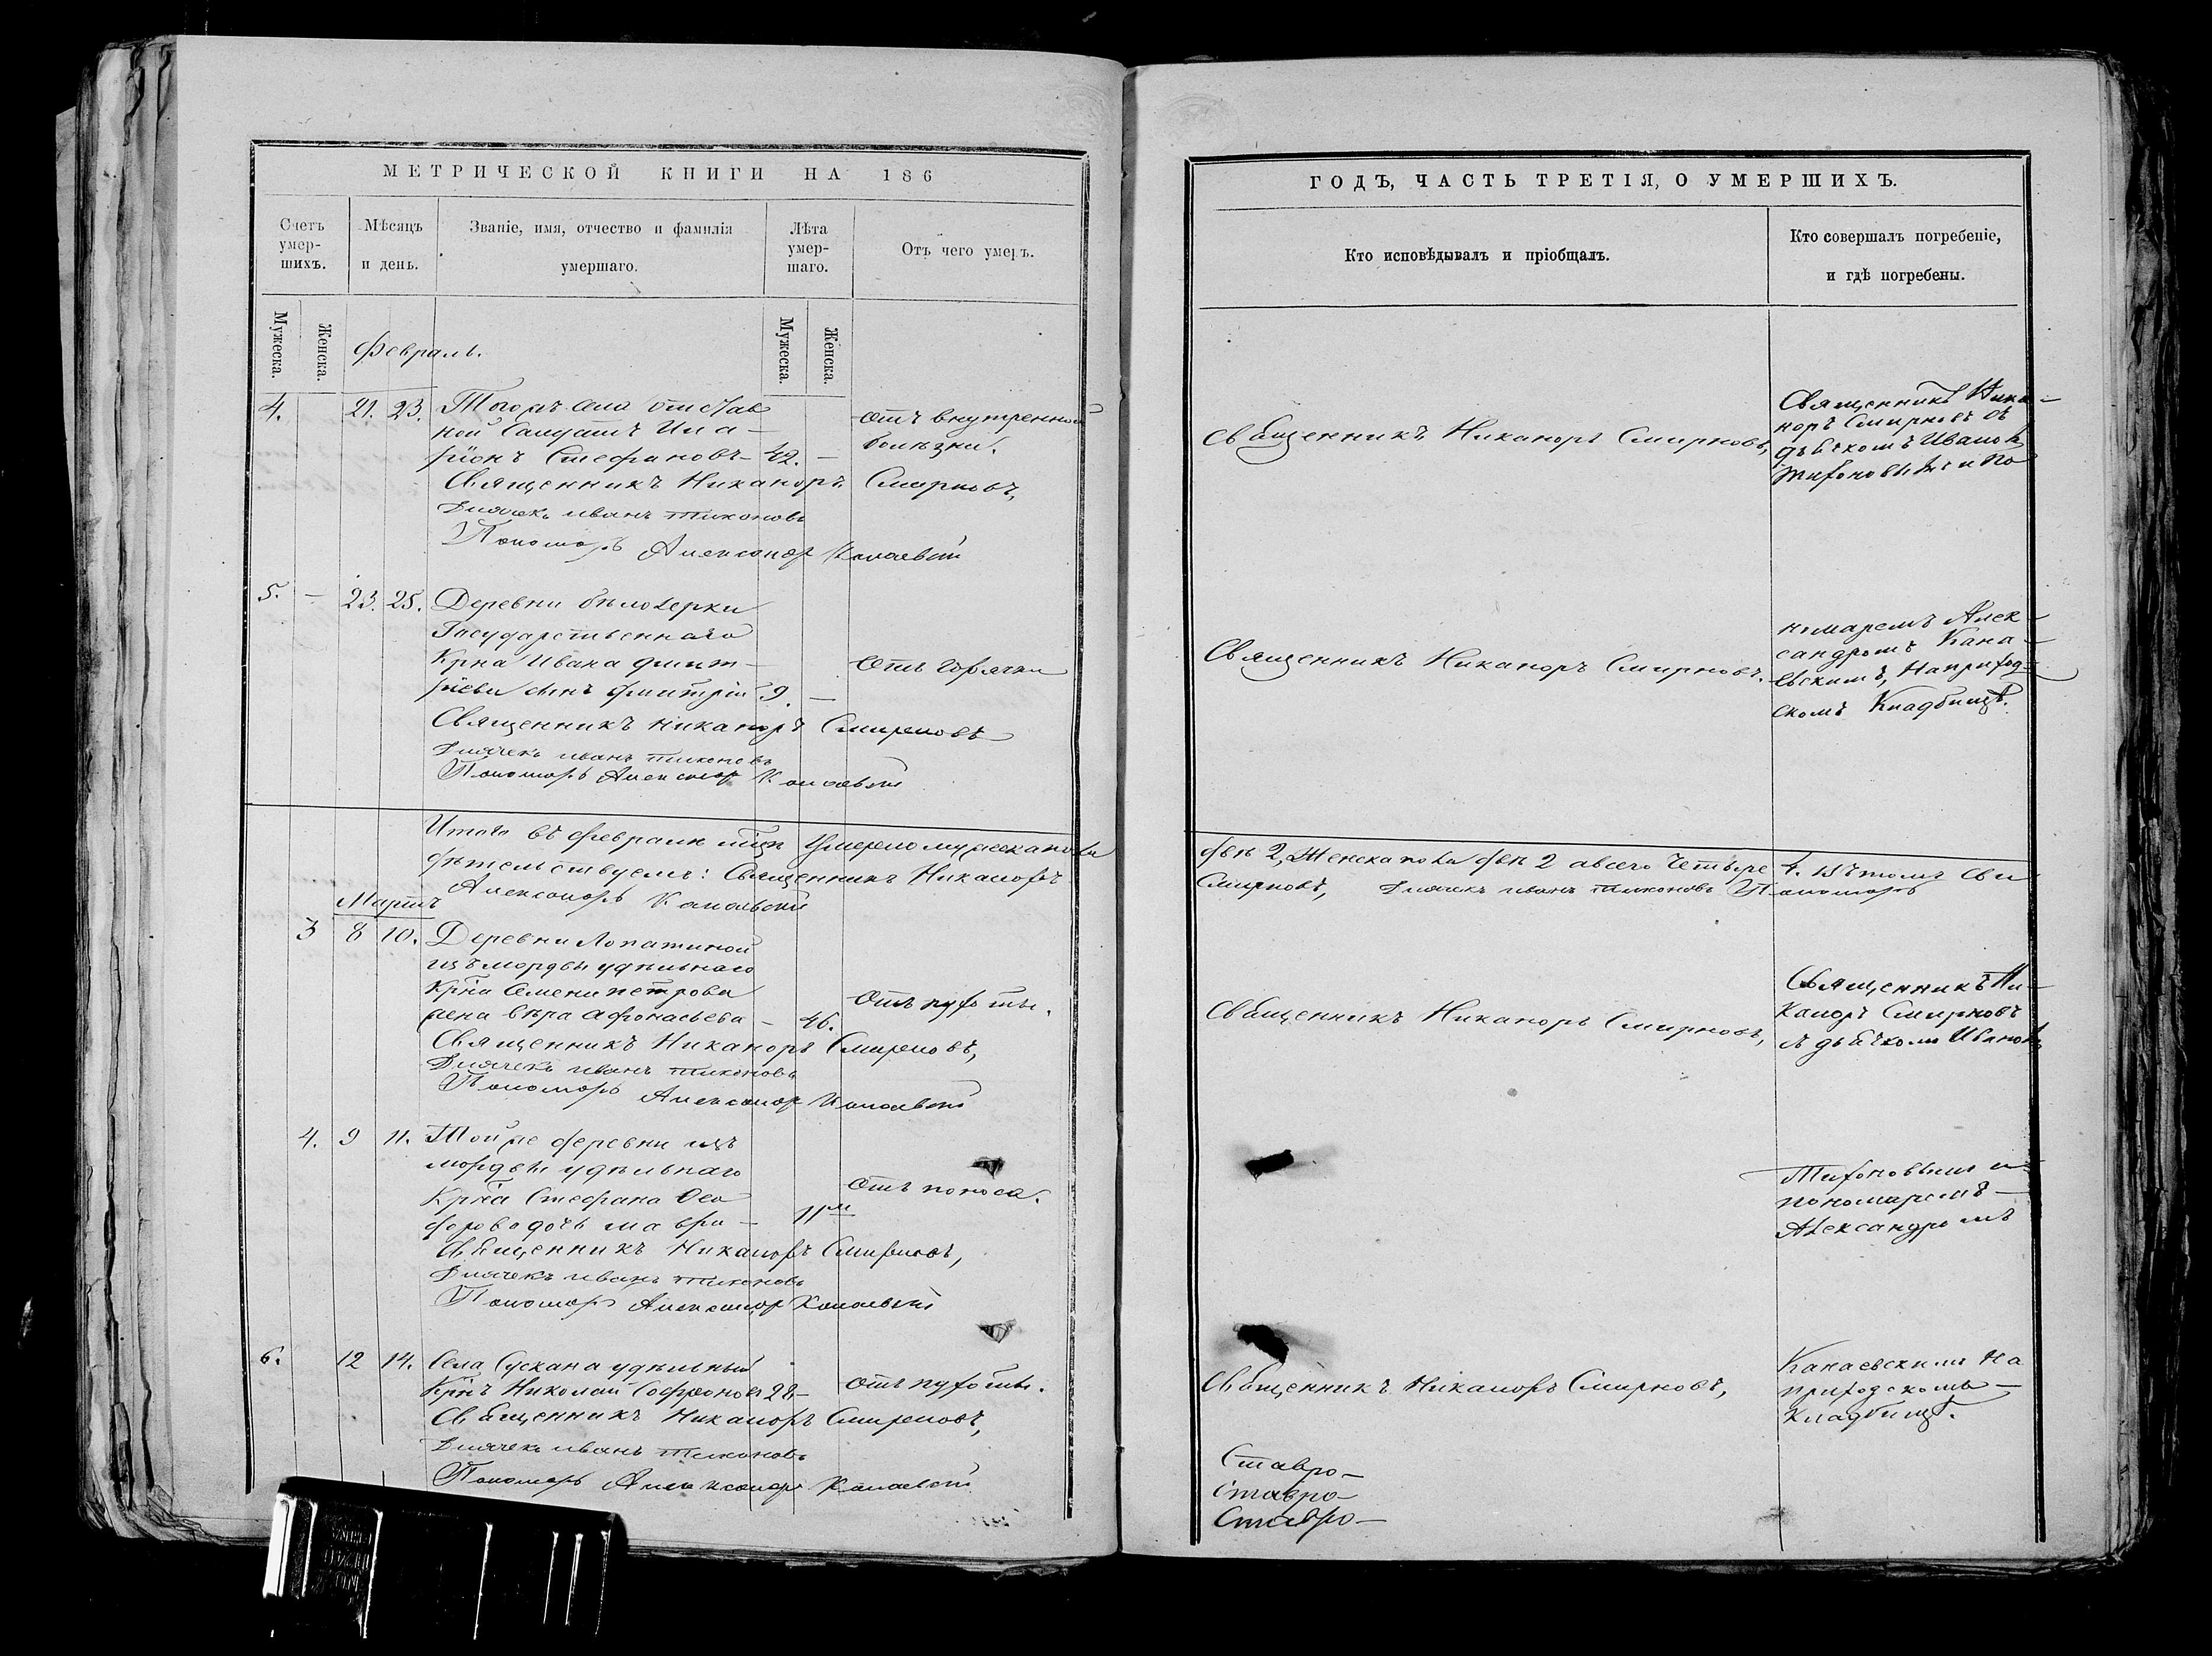 МЕТРИЧЕСКОЙ КНИГИ НА 186
Счетъ умер-шихъ.
Мѣсяцъ и день.
Званіе, имя, отчество и фамилія умершаго.
Лѣта умер-шаго.
Отъ чего умеръ.
Мужеска.
Женска.
Мужеска.
Женска.
Февраль.
4. 21. 23. Тогожъ села отстав
ной Салдатъ Ила-
ріонъ Стефановъ - 42. —
Отъ внутренной
болѣзни.
Священникъ Никаноръ Смирновъ,
Дьячекъ иванъ тихоновъ
Пономарь Александръ Канаевскій
5. — 23. 25. Деревни бѣлоЧерки
Государственнаго
Крна Ивана дмит-
ріева сынъ дмитрій 9. —
Отъ горячки
Священникъ Никаноръ Смирновъ
Дьячекъ иванъ тихоновъ
Пономарь Александръ Канаевскій
Итого въ феврале мцѣ Умерло мужеска пола
дѣтельствуемъ: Священникъ Никаноръ
Александръ Канаевскій
Мартъ
3 8 10. Деревни Лопатиной
изъ мордвы удѣльнаго
Крна Семена петрова
жена вѣра афонасьева — 46.
Отъ чухотты.
Священникъ Никаноръ Смирновъ,
Дьячекъ иванъ тихоновъ
Пономарь Александръ Канаевскій
4. 9 11. Той же деревни изъ
мордвы удѣльнаго
Крна Стефана Ѳео
дорова дочь мавра — 11м
Отъ поноса.
Священникъ Никаноръ Смирновъ,
Дьячекъ иванъ тихоновъ
Пономарь Александръ Канаевскій
6. 12 14. Села Сускана удѣльный
Крнъ Николай Софроновъ 28 —
Отъ чухотты.
Священникъ Никаноръ Смирновъ,
Дьячекъ иванъ тихоновъ
Пономарь Александръ Канаевскій
ГОДЪ, ЧАСТЬ ТРЕТІЯ, О УМЕРШИХЪ.
Кто исповѣдывалъ и пріобщалъ.
Кто совершалъ погребеніе,
и гдѣ погребены.
Священникъ Никаноръ Смирновъ,
Священникъ Ника-
норъ Смирновъ съ
дьячкомъ Иваномъ
Тихоновымъ и по
Священникъ Никаноръ Смирновъ.
номаремъ Алек-
сандромъ Кана-
евскимъ, На приход-
скомъ Кладбищѣ.
двѣ 2, Женска пола двѣ 2 а всего Четыре 4. въ томъ сви
Смирновъ, Дьячекъ иванъ тихоновъ Пономарь
Священникъ Никаноръ Смирновъ,
Священникъ Ни-
каноръ Смирновъ
съ дьячкомъ Иваномъ
Тихоновымъ и
пономаремъ —
Александромъ
Священникъ Никаноръ Смирновъ,
Канаевскимъ На
приходскомъ —
Кладбищѣ.
Ставро—
Ставро—
Ставро—